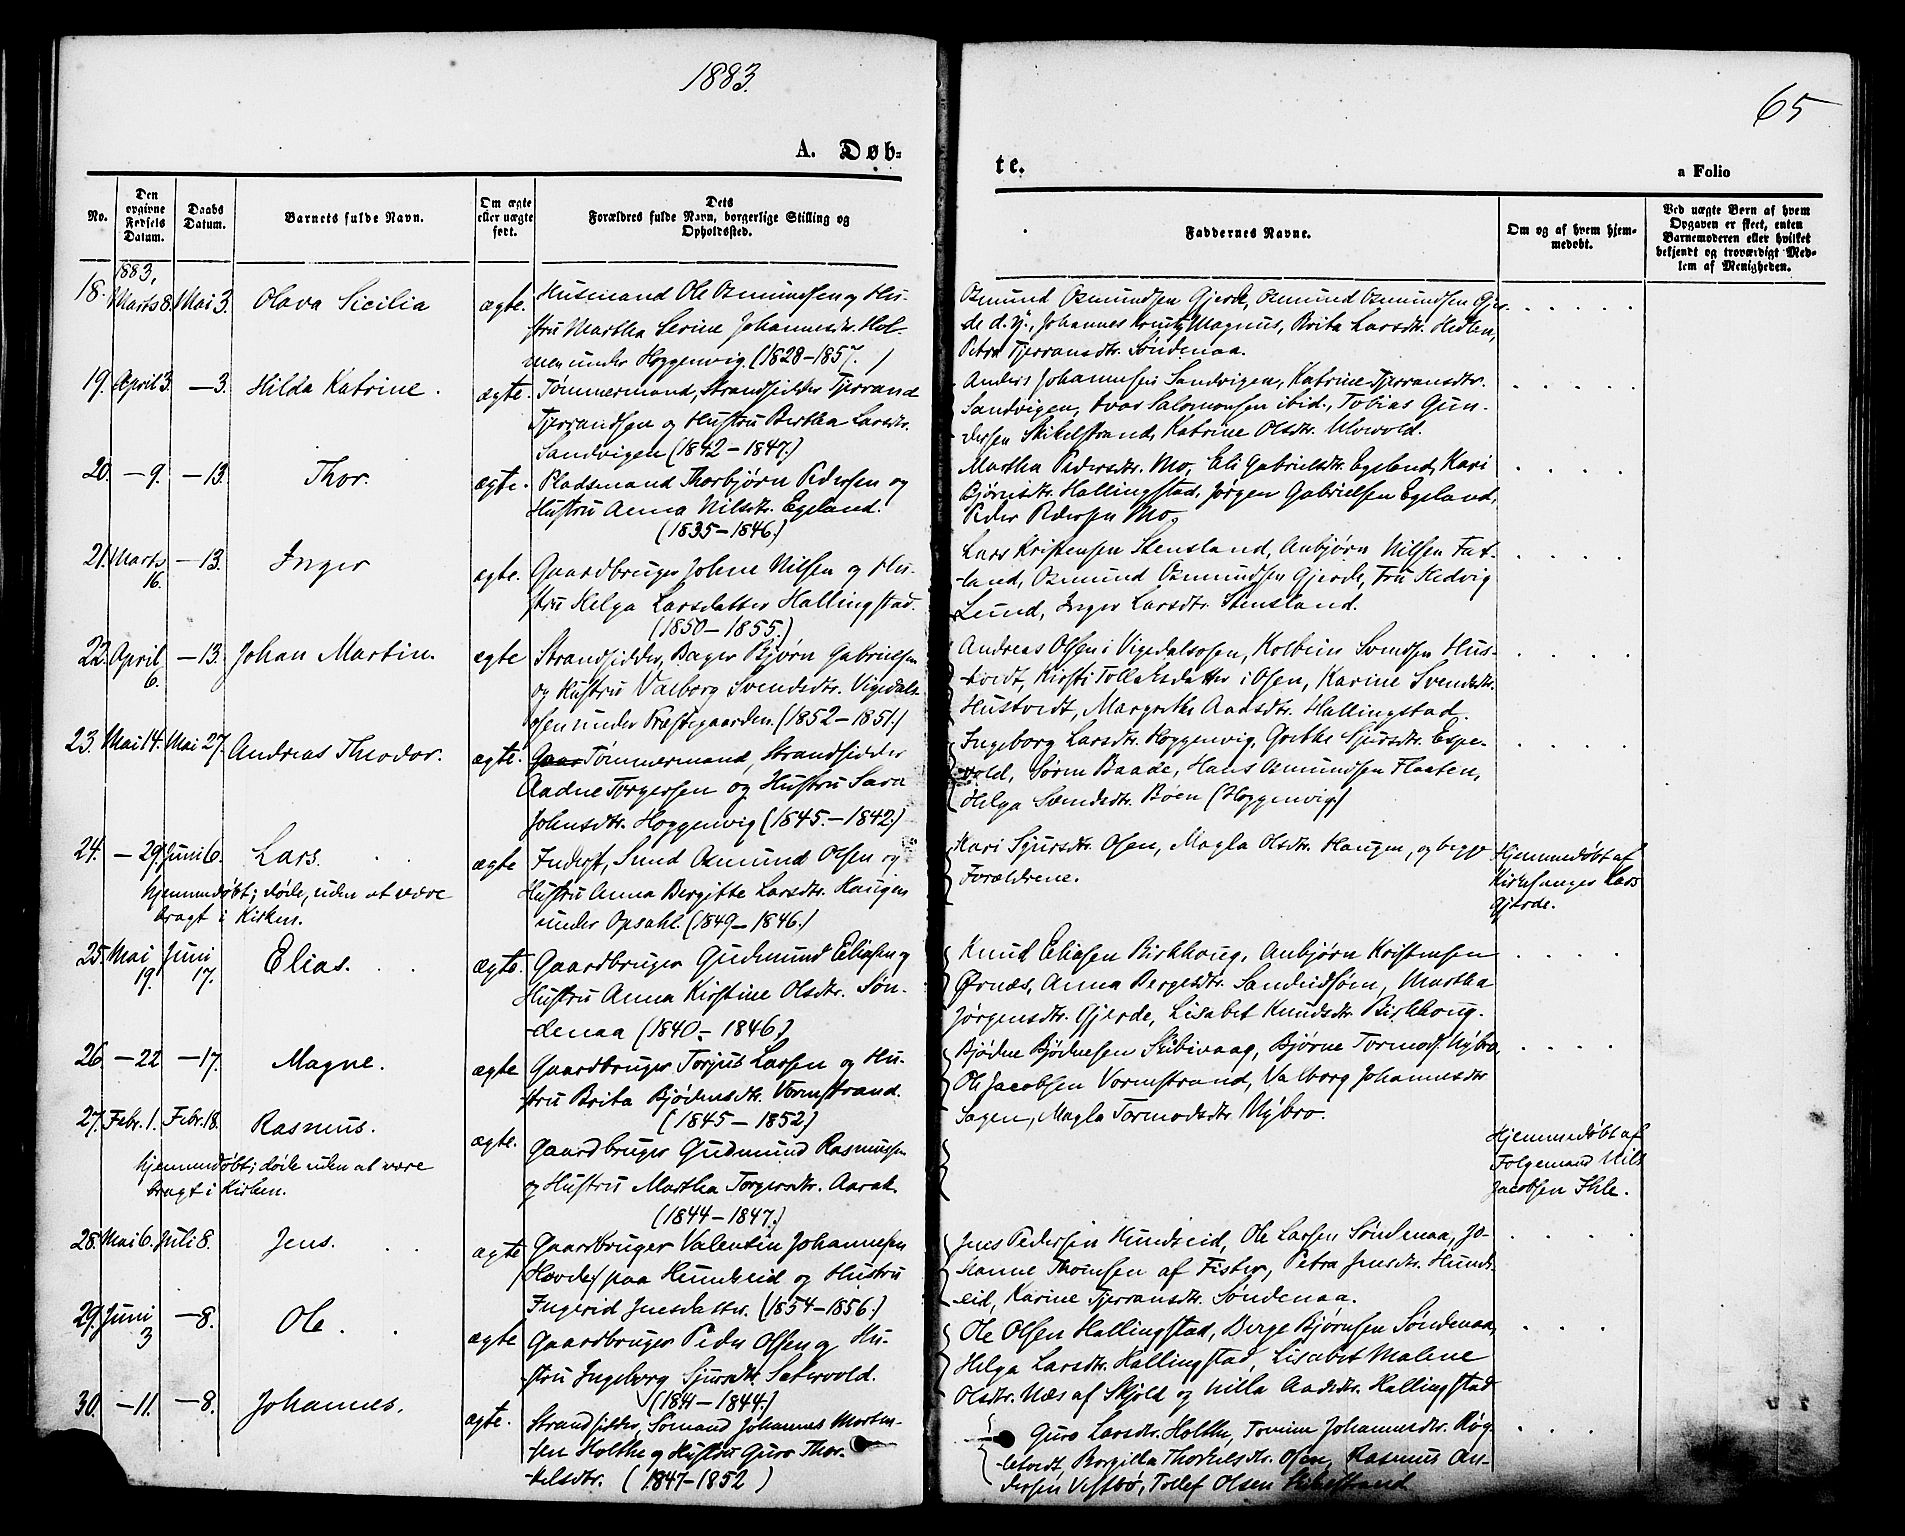 1883.
65
A. Døb-
te.
a Folio
No.
Den opgivne Fødsels Datum.
Daabs Datum.
Barnets fulde Navn.
Om ægte eller uægte født.
Dets Forældres fulde Navn, borgerlige Stilling og Opholdssted.
Faddernes Navne.
Om og af hvem hjemmedøbt.
Ved uægte Børn af hvem Opgaven er skeet, enten Barnemoderen eller hvilket bekjendt og troværdigt Medlem af Menigheden.
1883,
18. Marts 8. Mai 3. Olava Sicilia ægte. Husmand Ole Osmundsen og Hu-
stru Martha Serine Johannesdtr. Hol-
men under Hoggenvig. (1828-1857. )
Osmund Osmundsen Gjerde, Osmund Osmundsen Gjer-
de d. y., Johannes Knuts. Magnus, Brita Larsdtr. Hetlen,
Petra Tjerransdtr. Søndenaa.
19. April 3. - 3. Hilda Katrine. ægte. Tømmermand, Strandsidder Tjerrand
Tjerrandsen og Hustru Bertha Larsdtr.
Sandvigen (1842-1847.)
Anders Johannesen Sandvigen, Katrine Tjerransdtr.
Sandvigen, Ivar Salomonsen ibid., Tobias Gun-
dersen Skikelstrand, Katrine Olsdtr. Ulvevold.
20. - 9. - 13. Thor. ægte. Pladsmand Thorbjørn Pedersen og
Hustru Anna Nilsdtr. Egeland.
(1835-1846.)
Martha Pedersdtr. Mo, Eli Gabrielsdtr. Egeland, Kari
Bjørnsdtr. Hallingstad, Jørgen Gabrielsen Egeland,
Peder Pedersen Mo.
21. Marts 16. - 13. Inger ægte. Gaardbruger Johne Nilsen og Hu-
stru Helga Larsdatter Hallingstad.
(1850-1855.)
Lars Kristensen Stensland, Anbjørn Nilsen Fat-
land, Osmund Osmundsen Gjerde, Fru Hedvig
Lund, Inger Larsdtr. Stensland.
22. April 6. - 13. Johan Martin. ægte Strandsidder, Bager Bjørn Gabrielsen
og Hustru Valborg Svendsdtr. Vigedals-
osen under Præstegaarden. (1852-1851.)
Andreas Olsen i Vigedalsosen, Kolbein Svendsen Hus-
tvedt, Kirsti Tollaksdatter i Osen, Karine Svendsdtr.
Hustvedt, Margrethe Aadsdtr. Hallingstad.
23. Mai 14. Mai 27. Andreas Theodor. ægte. Gaar Tømmermand, Strandsidder
Aadne Torgersen og Hustru Sara
Johnsdtr. Hoggenvig (1845.-1842.)
Ingeborg Larsdtr. Hoggenvig, Grethe Sjursdtr. Espe-
vold, Søren Baade, Hans Osmundsen Flaaten,
Helga Svendsdtr. Bøen (Hoggenvig)
24. - 29. Juni 6. Lars. ægte Inderst, Smed Osmund Olsen og
Hustru Anna Bergitte Larsdtr. Haugen
under Opsahl. (1849-1846.)
hjemmedøbt; døde, uden at være
bragt i Kirken.
Kari Sjursdtr. Osen, Magla Olsdtr. Haugen, og begge
Forældrene.
Hjemmedøbt af
Kirkesanger Lars
Gjerde.
25. Mai 19. Juni 17. Elias. ægte. Gaardbruger Gudmund Eliasen og
Hustru Anna Kirstine Olsdtr. Søn-
denaa (1840-1846)
Knud Eliasen Birkhoug, Anbjørn Kristensen
Ørnæs, Anna Bergesdtr. Sandeidsøen, Martha
Jørgensdtr. Gjerde, Lisabet Knudsdtr. Birkhoug.
26. - 22 - 17. Magne. ægte Gaardbruger Torjus Larsen og Hu-
stru Brita Bjødnesdtr. Vormestrand.
(1845-1852)
Bjødne Bjødnesen Skibevaag, Bjørne Tormods. Nybro,
Ole Jacobsen Vormestrand, Valborg Johannesdtr.
Sagen, Magla Tormodsdtr. Nybro.
27. Febr. 1. Febr. 18. Rasmus. ægte. Gaardbruger Gudmund Rasmussen
og Hustru Martha Torgersdtr. Aarak.
(1844-1847.)
hjemmedøbt; døde uden at være
bragt i Kirken.
Hjemmedøbt af
Følgemand Nils
Jacobsen Ihle.
28. Mai 6. Juli 8. Jens. ægte Gaardbruger Valentin Johannesen
(Hovde) paa Hundseid og Hustru
Ingerid Jensdatter. (1854-1856.)
Jens Pedersen Hundseid, Ole Larsen Søndenaa, Jo-
hanne Thomsen af Fister, Petra Jensdtr. Hunds-
eid, Karine Tjerransdtr. Søndenaa.
29. Juni 3 - 8. Ole. ægte Gaardbruger Peder Olsen og Hu-
stru Ingeborg Sjursdtr. Sætervold.
(1841-1844.)
Ole Olsen Hallingstad, Berge Bjørnsen Søndenaa,
Helga Larsdtr. Hallingstad, Lisabet Malene
Olsdtr. Næs af Skjold og Nilla Aadsdtr. Hallingstad
30. - 11. - 8. Johannes. ægte. Strandsidder, Sømand Johannes Morten-
sen Holthe og Hustru Guro Thor-
kelsdtr. (1847-1852)
Guro Larsdtr. Holthe, Tomine Johannesdtr. Røg-
letvedt, Borgilla Thorkelsdtr. Osen, Rasmus An-
dersen Vestbø, Tollef Olsen